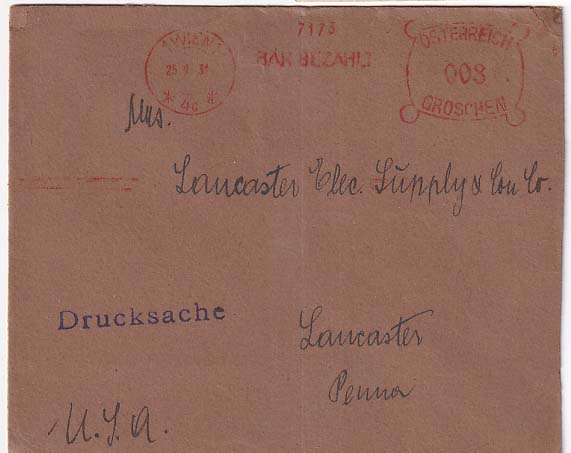 7173
WIEN 1
BAR BEZAHLT
ÖSTERREICH
25. 31
008
* 4c *
GROSCHEN
Mrs.
Lancaster Elec. Supply & Con Co.
Drucksache
Lancaster
Penna
U.S.A.